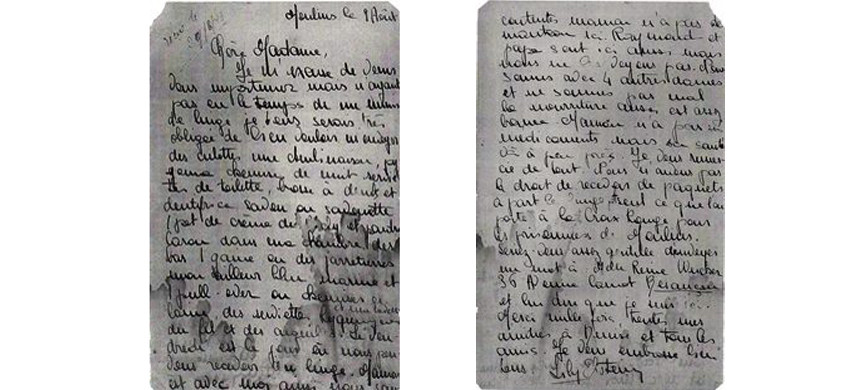 Moulins le 9 Août
Chère Madame,
Je m'excuse de venir
vous importuner mais n'ayant
pas eu le temps de
de linge je vous serais très
obligée de bien vouloir m'envoyer
des culottes une combinaison, py
gama chemise de nuit servie
tes de toilette, brosse à dents et
dentifrice savon ou savonnette
1 pot de crème de
dans ma chambre des
bas 1 gaine ou des jarretières
mon tailleur bleu marine et
1 pull-over ou chemisier
laine des serviettes hygiéniques
du fil et des aiguilles. Le ven
dredi est le jour où nous pou
vons recevoir du linge. Maman
est avec moi aussi nous
contentes maman n'a pas de
ici. Raymond et
papa sont ici aussi mais
nous ne les voyons pas. Nous
sommes avec 4 autres dames
et ne sommes pas mal
la nourriture aussi est assez
bonne Maman n'a pas
médicaments mais sa santé
va à peu près. Je vous remer
cie de tout. Nous n'avons pas
le droit de recevoir de paquets
à part le linge, seul ce que l'on
porte à la Croix Rouge pour
les prisonniers de Moulins.
Serez-vous assez gentille d'envoyer
un mot à Mlle Reine
36 Avenue Carnot Besançon
et lui dire que je suis ici.
Merci mille fois, toutes mes
amitiés à Denise et tous les
amis. Je vous embrasse bien
tous. Lily